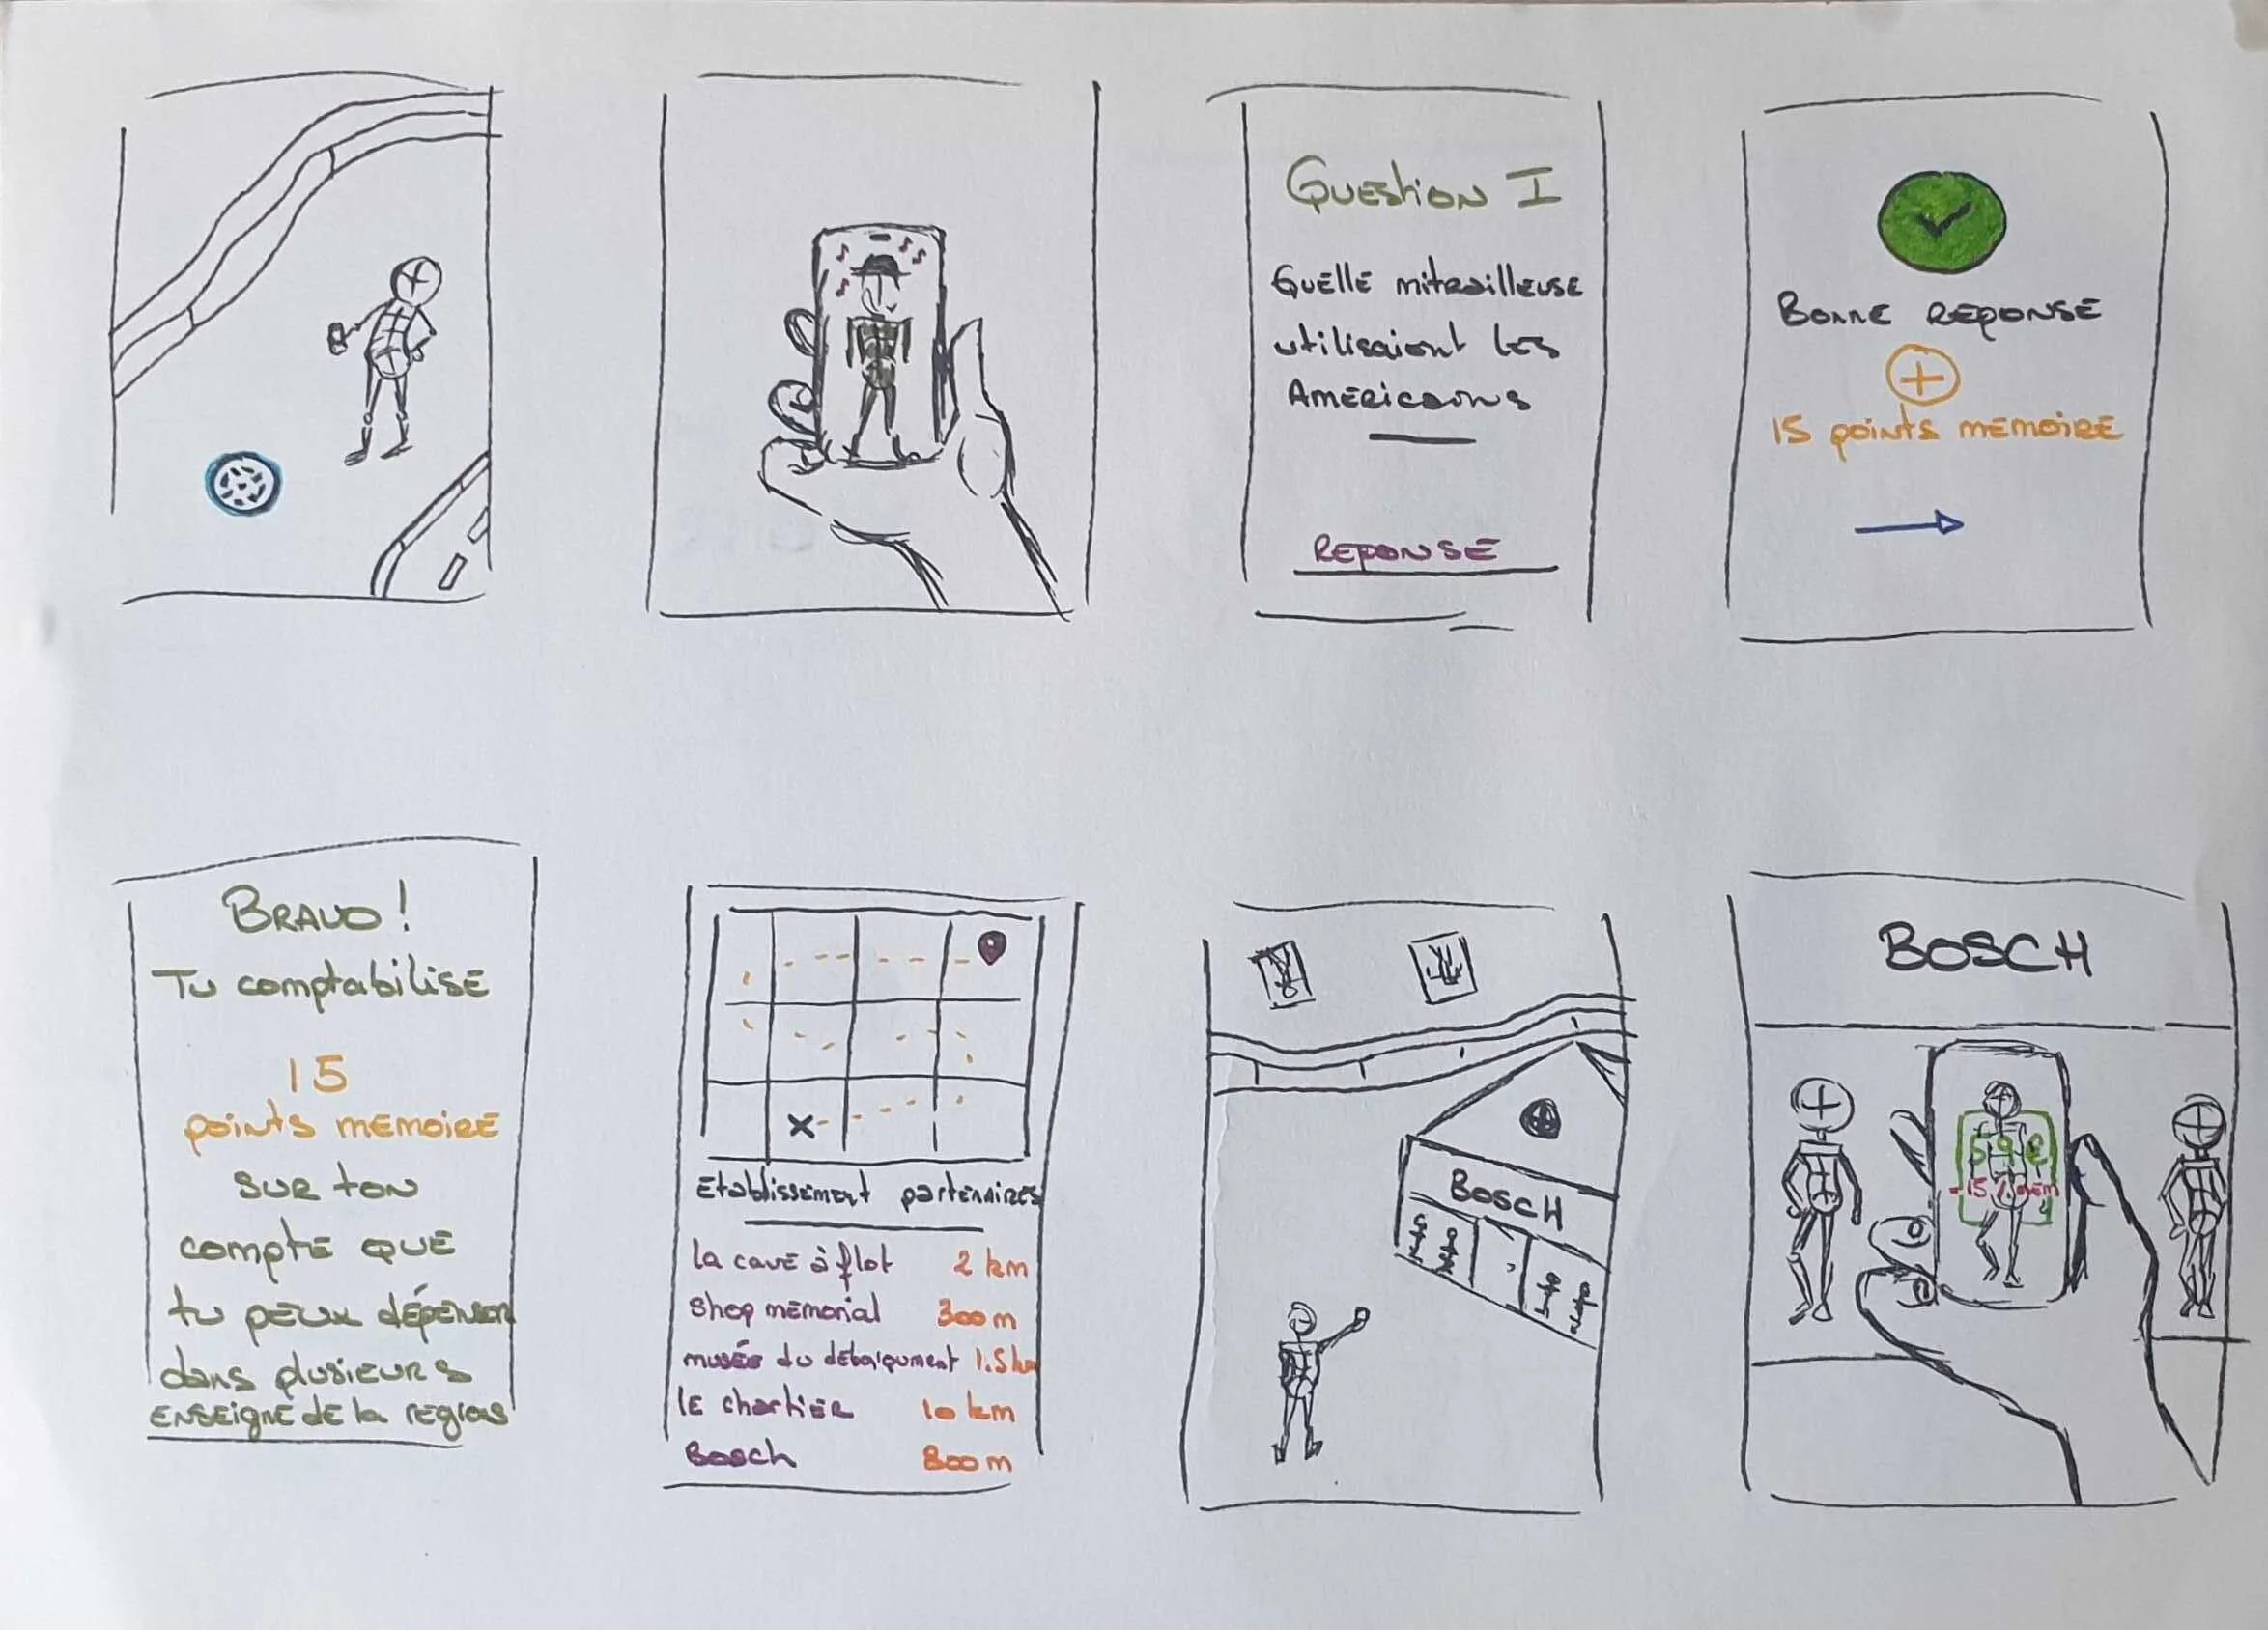 QUESTION I
QUELLE mitrailleuse
utilisaient les
AMERICAINS
REPONSE
BONNE REPONSE
+
15 points MEMOIRE
BRAVO !
Tu comptabilise
15
points MEMOIRE
SUR TON
compte QUE
tu peux dépenser
dans plusieurs
ENSEIGNE DE la region
Etablissement partenaires
la cave à flot 2 km
Shop memorial 300 m
musée du débarquement 1.5 km
le chartier 10 km
Bosch 800 m
BOSCH
BOSCH
59 €
-15%